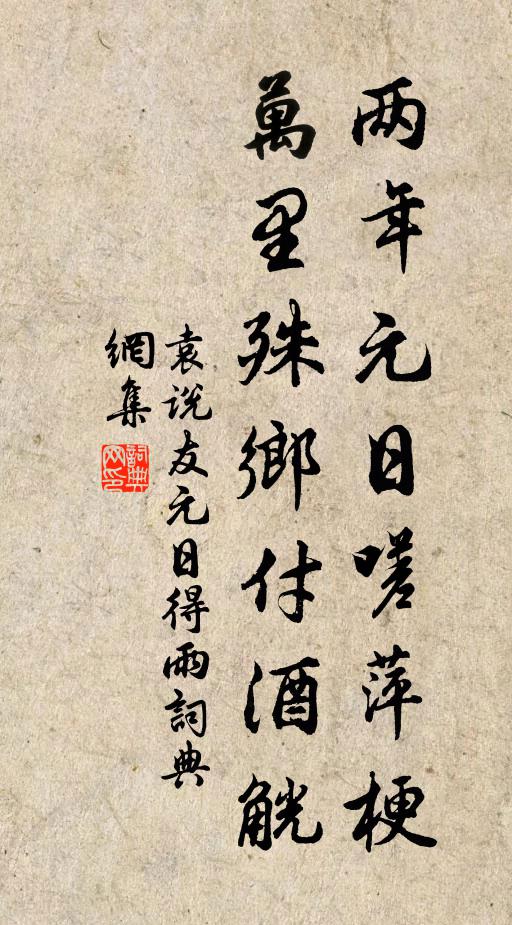 两年元日嗟萍梗
萬里殊鄉付酒觥
袁说友元日得雨詞典
網集
詞典網印